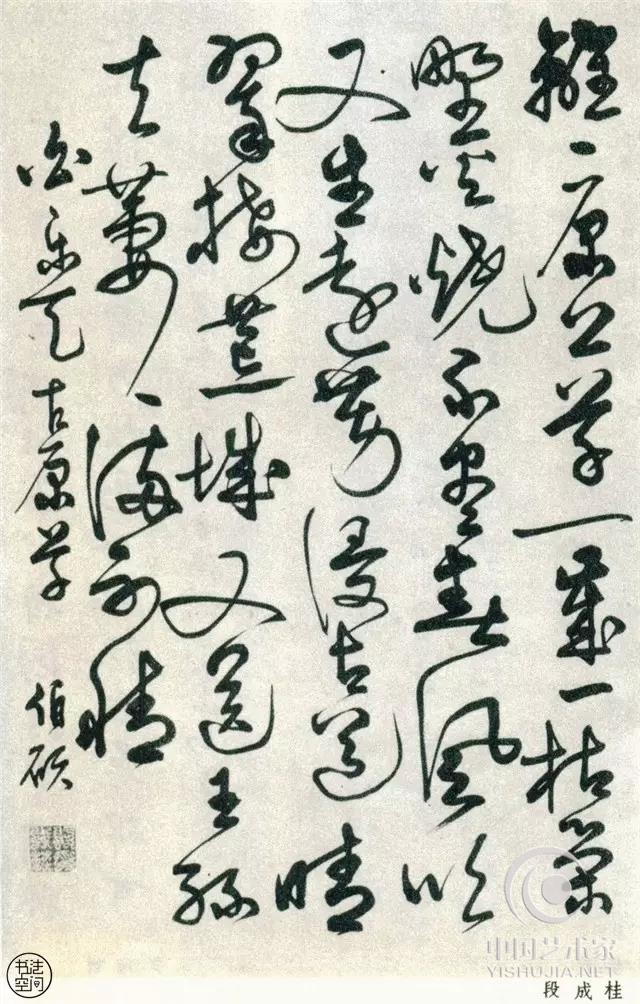 離〻原上草一歲一枯榮
野火燒不盡春風吹
又生遠芳侵古道晴
翠接荒城又送王孫
去萋〻滿別情
白樂天古原草 伯碩
中国艺术家
YISHUJIA.NET
书法空间
段成桂